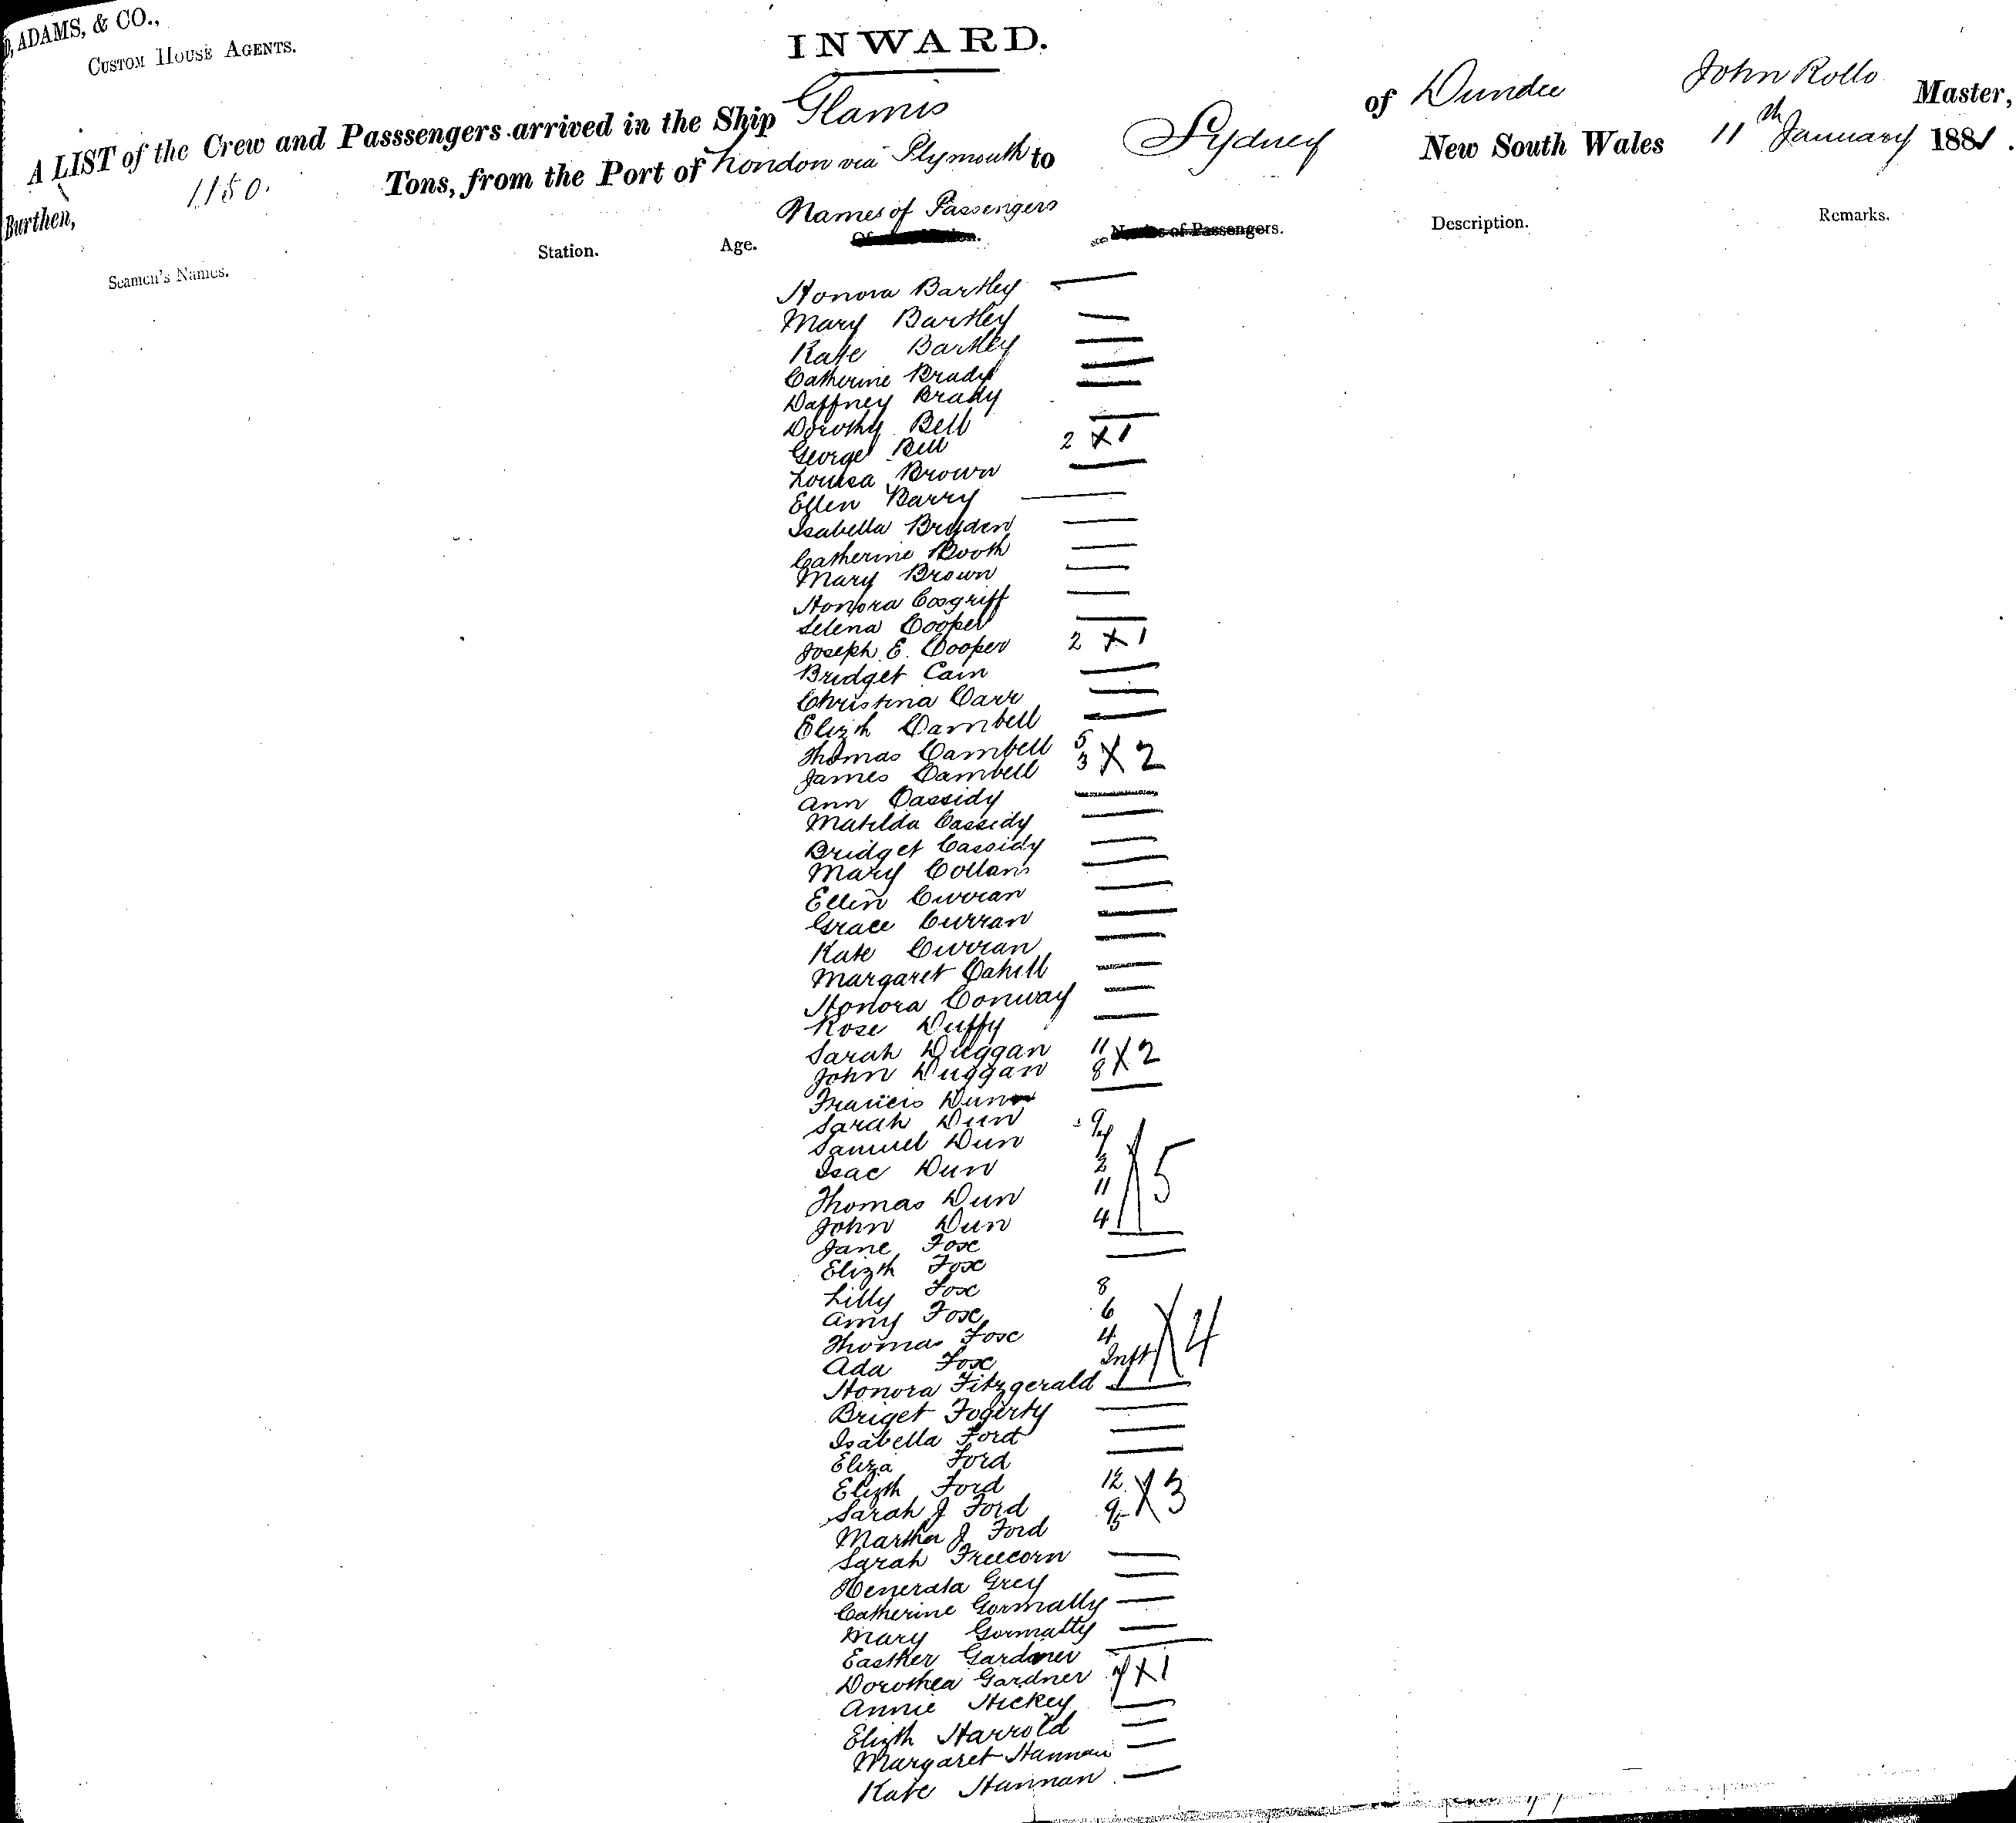 ADAMS, & CO.,
CUSTOM HOUSE AGENTS.
INWARD.
A LIST of the Crew and Passsengers arrived in the Ship Glamis of Dundee John Rollo Master,
Burthen, 1150. Tons, from the Port of London via Plymouth to Sydney New South Wales 11th January 1881.
Seamen's Names. Station. Age. Names of Passengers Names of Passengers. Description. Remarks.
Honora Bartley —
Mary Bartley —
Kate Bartley —
Catherine Brady —
Daffney Brady —
Dorothy Bell —
George Bell 2 X 1
Louisa Brown —
Ellen Barry —
Isabella Bryden —
Catherine Booth —
Mary Brown —
Honora Cosgriff —
Selena Cooper —
Joseph E. Cooper 2 X 1
Bridget Cain —
Christina Carr —
Elizth Cambell —
Thomas Cambell 5
James Cambell 3 X 2
Ann Cassidy —
Matilda Cassidy —
Bridget Cassidy —
Mary Collans —
Ellen Curran —
Grace Curran —
Kate Curran —
Margaret Cahill —
Honora Conway —
Rose Duffy —
Sarah Duggan 11
John Duggan 8 X 2
Francis Dun —
Sarah Dun 9
Samuel Dun 7
Isac Dun 2 X 5
Thomas Dun 11
John Dun 4
Jane Fox —
Elizth Fox —
Lilly Fox 8
Amy Fox 6
Thomas Fox 4 X 4
Ada Fox Inft
Honora Fitzgerald —
Briget Fogerty —
Isabella Ford —
Eliza Ford —
Elizth Ford 12
Sarah J Ford 9 X 3
Martha J Ford 5
Sarah Freecorn —
Henerata Grey —
Catherine Gormally —
Mary Gormally —
Easther Gardner —
Dorothea Gardner 7 X 1
Annie Hickey —
Elizth Harrold —
Margaret Hannan —
Kate Hannan —